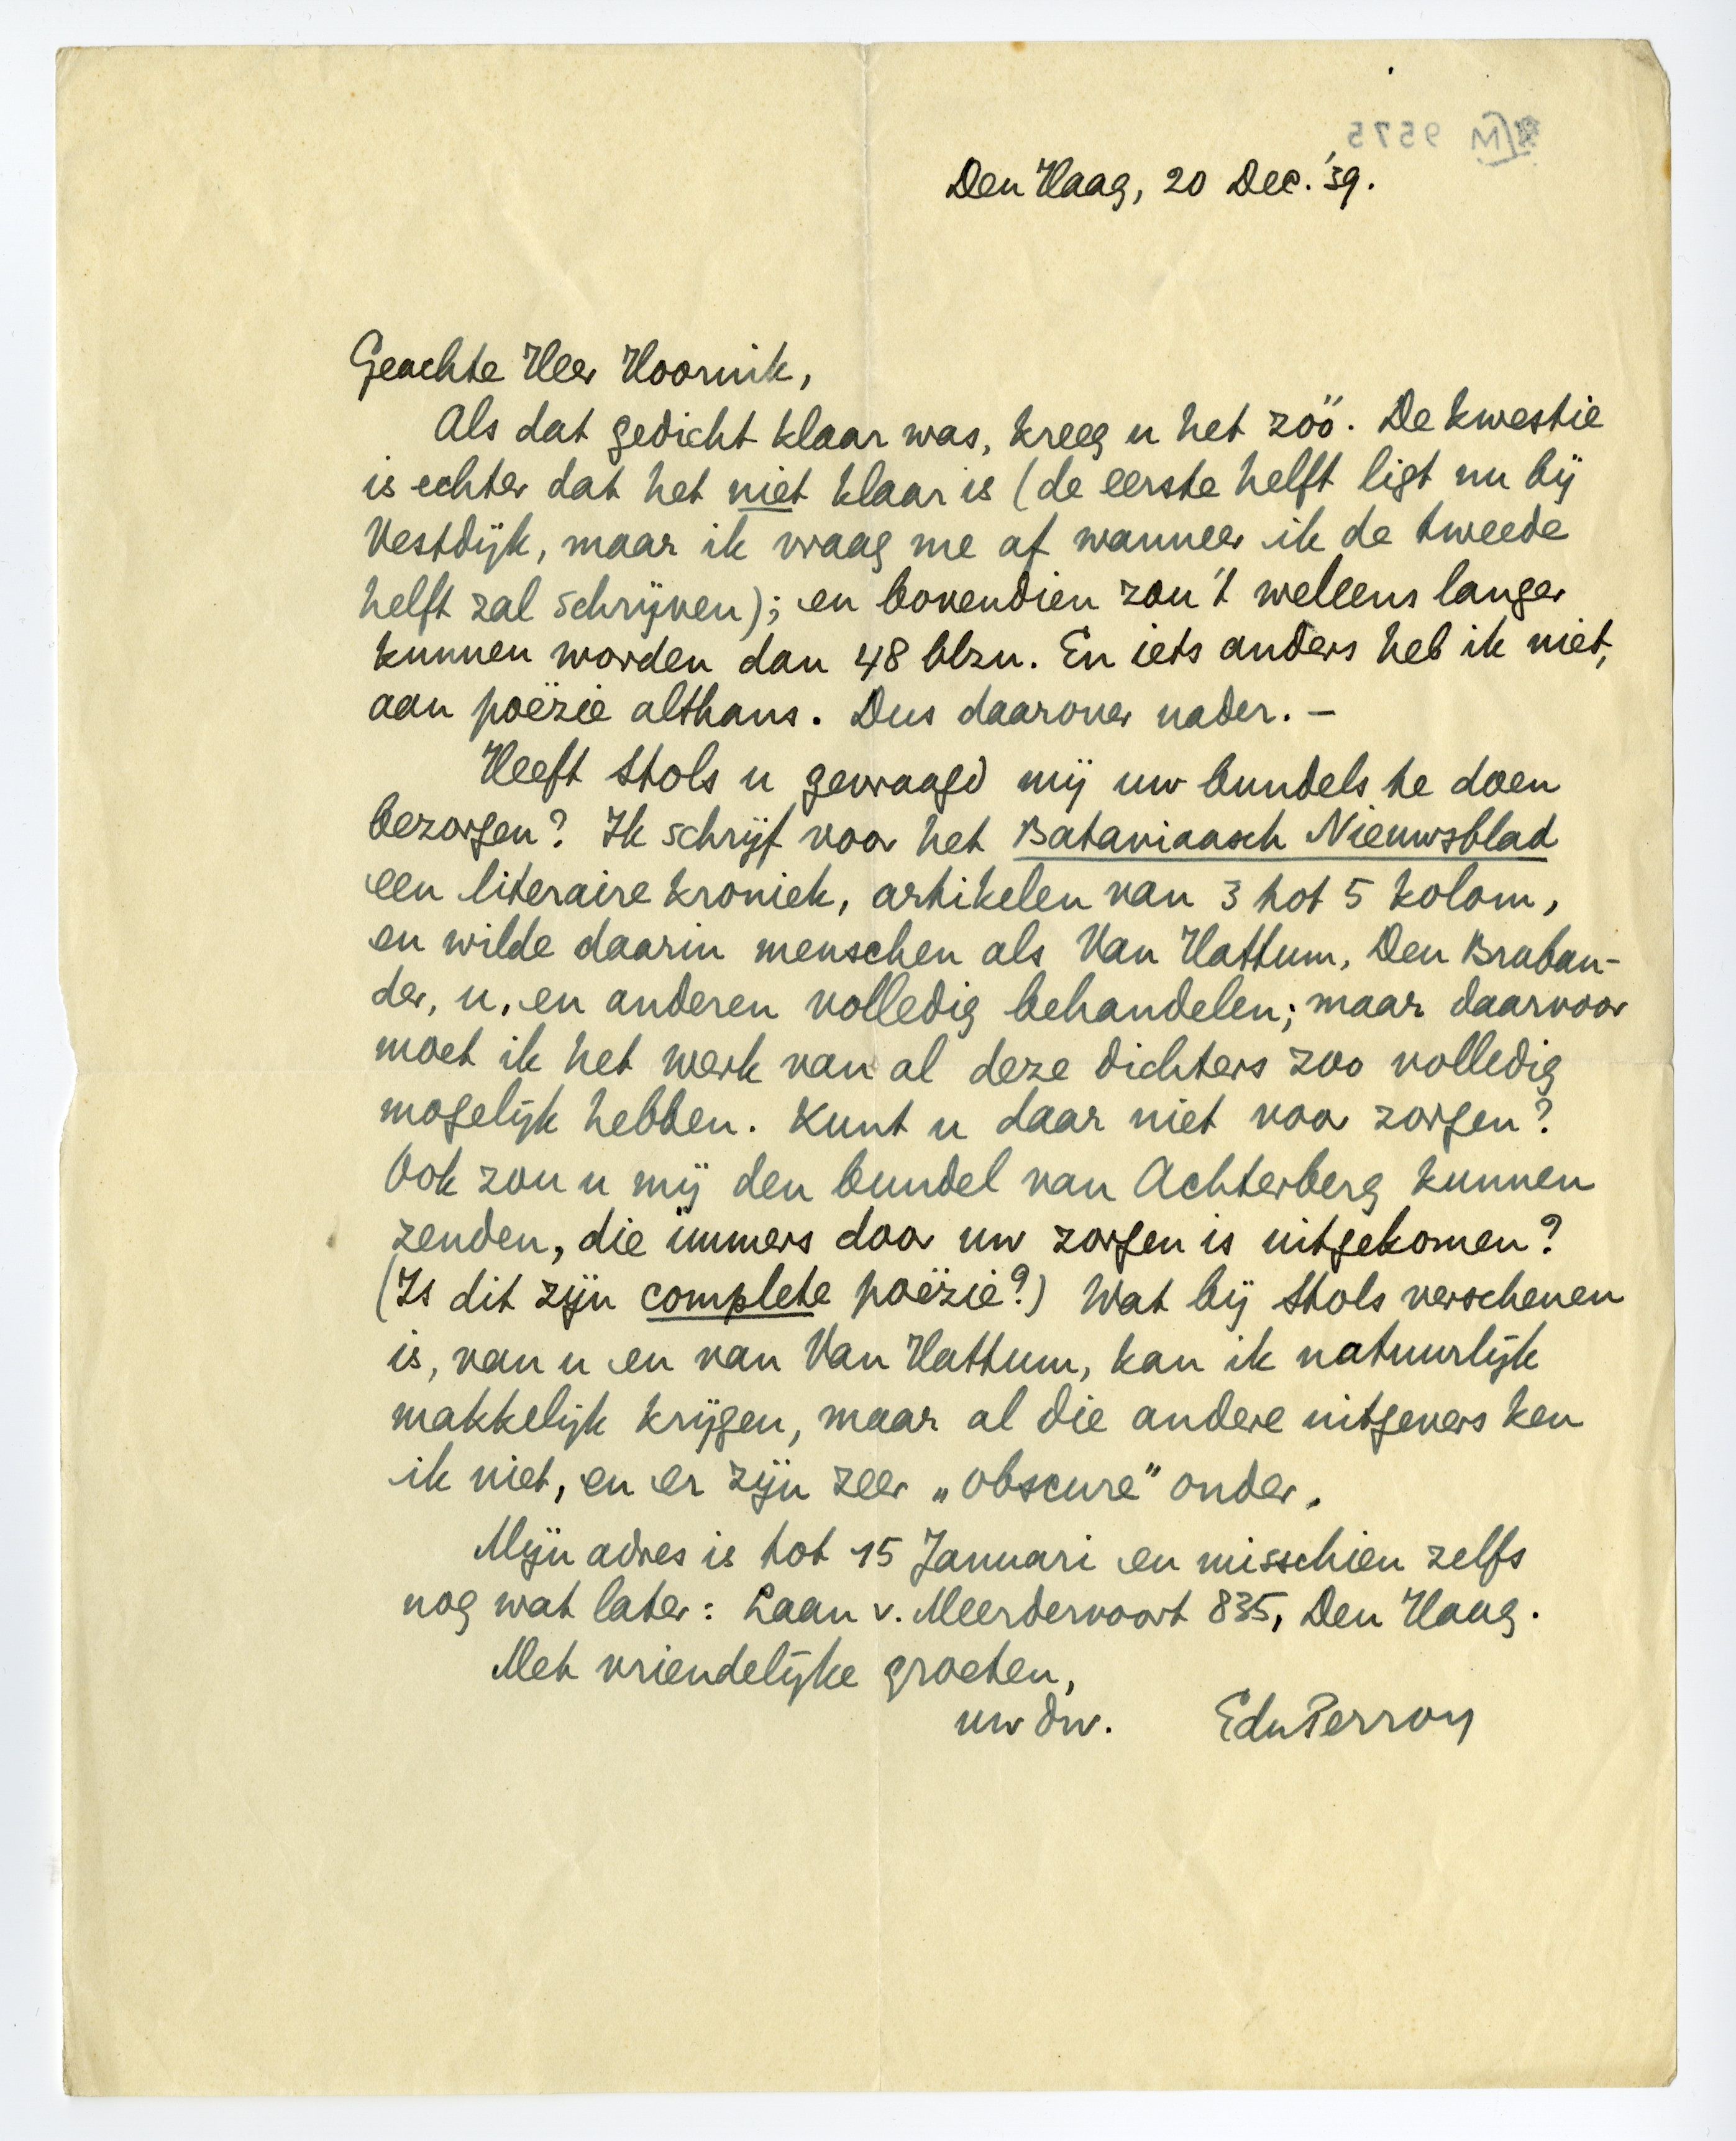 Den Haag, 20 Dec. '39.
Geachte Heer Hoornik,
Als dat gedicht klaar was, kreeg u het zóó. De kwestie
is echter dat het niet klaar is (de eerste helft ligt nu bij
Vestdijk, maar ik vraag me af wanneer ik de tweede
helft zal schrijven); en bovendien zou 't weleens langer
kunnen worden dan 48 blzn. En iets anders heb ik niet,
aan poëzie althans. Dus daarover nader. –
Heeft Stols u gevraagd mij uw bundels te doen
bezorgen? Ik schrijf voor het Bataviaasch Nieuwsblad
een literaire kroniek, artikelen van 3 tot 5 kolom,
en wilde daarin menschen als Van Hattum, Den Braban-
der, u, en anderen volledig behandelen; maar daarvoor
moet ik het werk van al deze dichters zoo volledig
mogelijk hebben. Kunt u daar niet voor zorgen?
Ook zou u mij den bundel van Achterberg kunnen
zenden, die immers door uw zorgen is uitgekomen?
(Is dit zijn complete poëzie?) Wat bij Stols verschenen
is, van u en van Van Hattum, kan ik natuurlijk
makkelijk krijgen, maar al die andere uitgevers ken
ik niet, en er zijn zeer „obscure" onder.
Mijn adres is tot 15 Januari en misschien zelfs
nog wat later: Laan v. Meerdervoort 835, Den Haag.
Met vriendelijke groeten,
uw dw. EduPerron